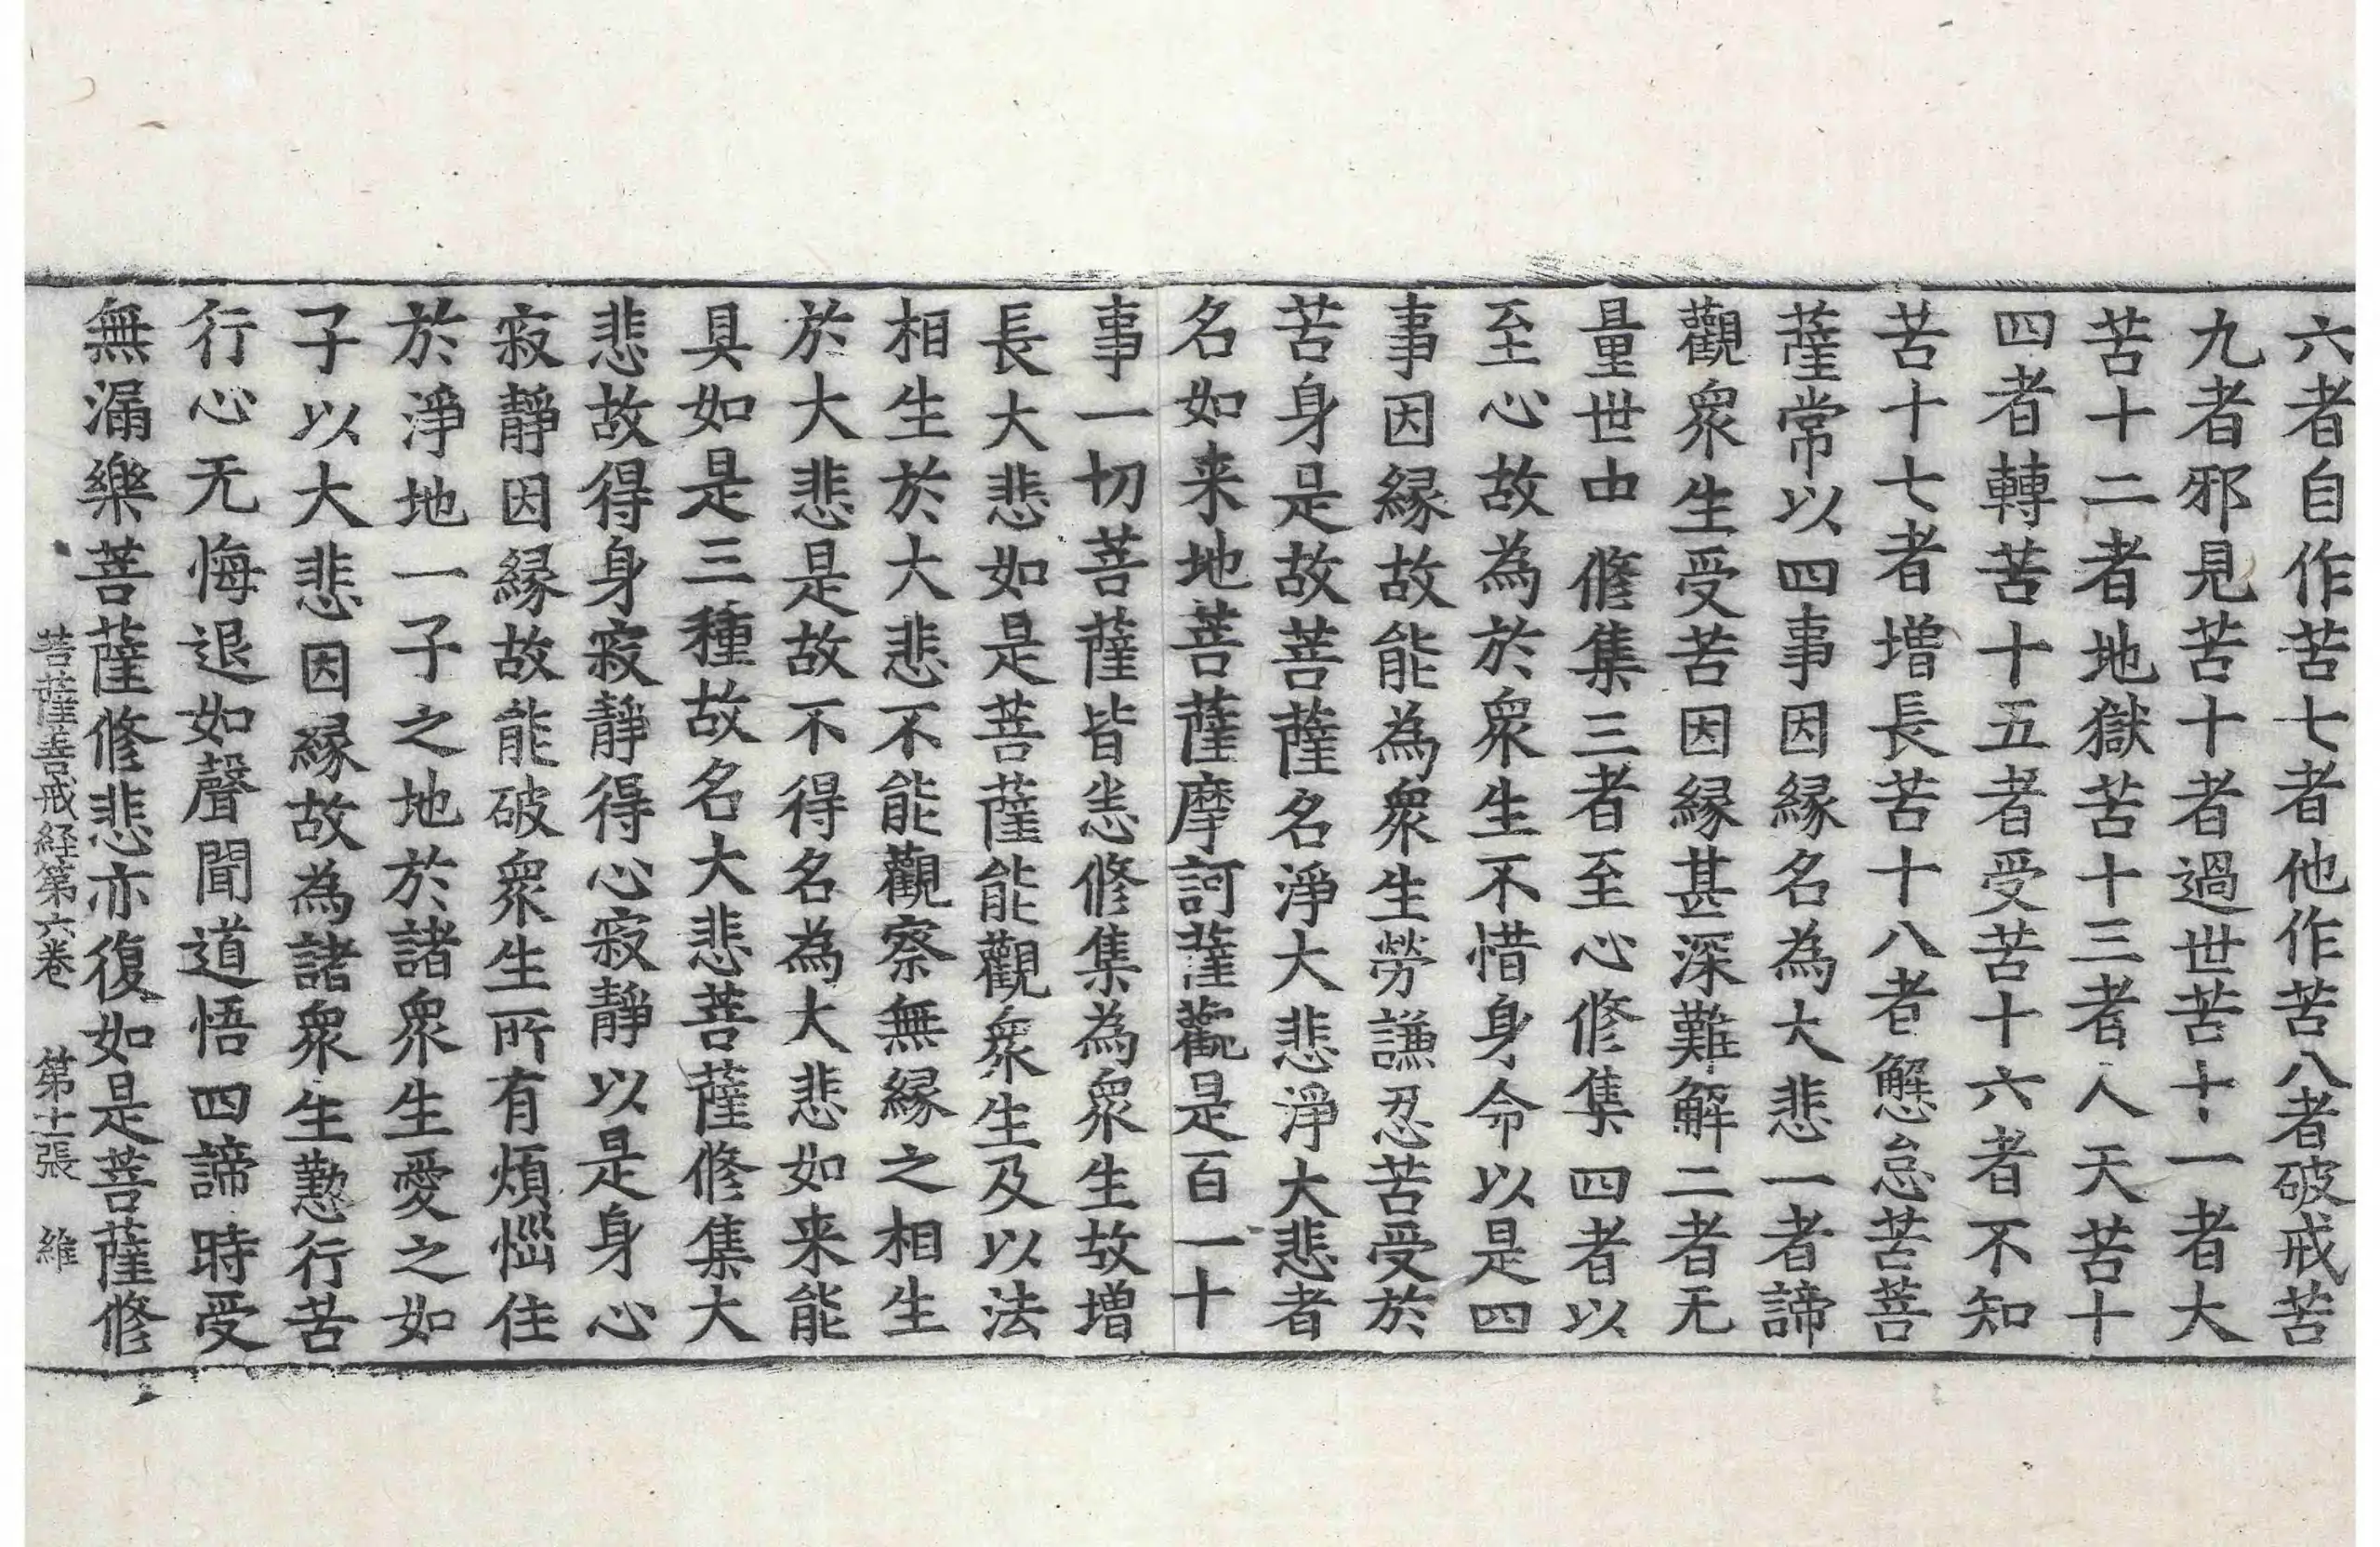 六者自作苦七者他作苦八者破戒苦
九者邪見苦十者過世苦十一者大
苦十二者地獄苦十三者人天苦十
四者轉苦十五者受苦十六者不知
苦十七者增長苦十八者懈怠苦菩
薩常以四事因緣名為大悲一者諦
觀衆生受苦因緣甚深難解二者无
量世中 修集三者至心修集四者以
至心故為於衆生不惜身命以是四
事因緣故能為衆生勞謙忍苦受於
苦身是故菩薩名淨大悲淨大悲者
名如来地菩薩摩訶薩觀是百一十
事一切菩薩皆悉修集為衆生故增
長大悲如是菩薩能觀衆生及以法
相生於大悲不能觀察無緣之相生
於大悲是故不得名為大悲如来能
具如是三種故名大悲菩薩修集大
悲故得身寂靜得心寂靜以是身心
寂靜因緣故能破衆生所有煩惱住
於淨地一子之地於諸衆生愛之如
子以大悲因緣故為諸衆生懃行苦
行心无悔退如聲聞道悟四諦時受
無漏樂菩薩修悲亦復如是菩薩修
菩薩善戒経第六卷 第十一張 維